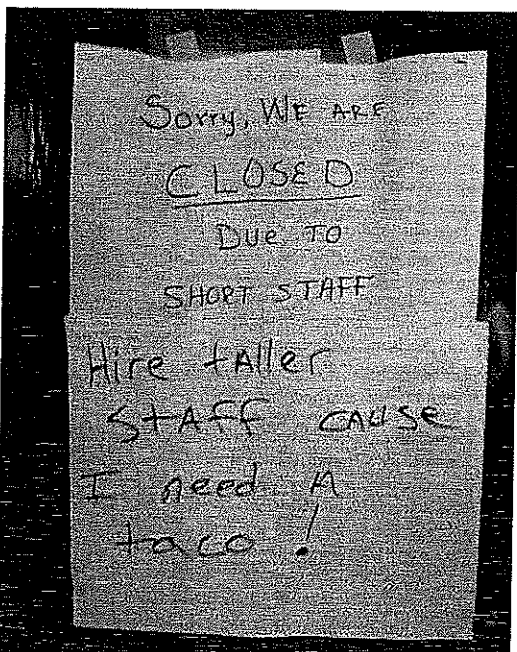 Sorry, WE ARE
CLOSED
DUE TO
SHORT STAFF
Hire tAller
StAff cAUSE
I need A
taco!